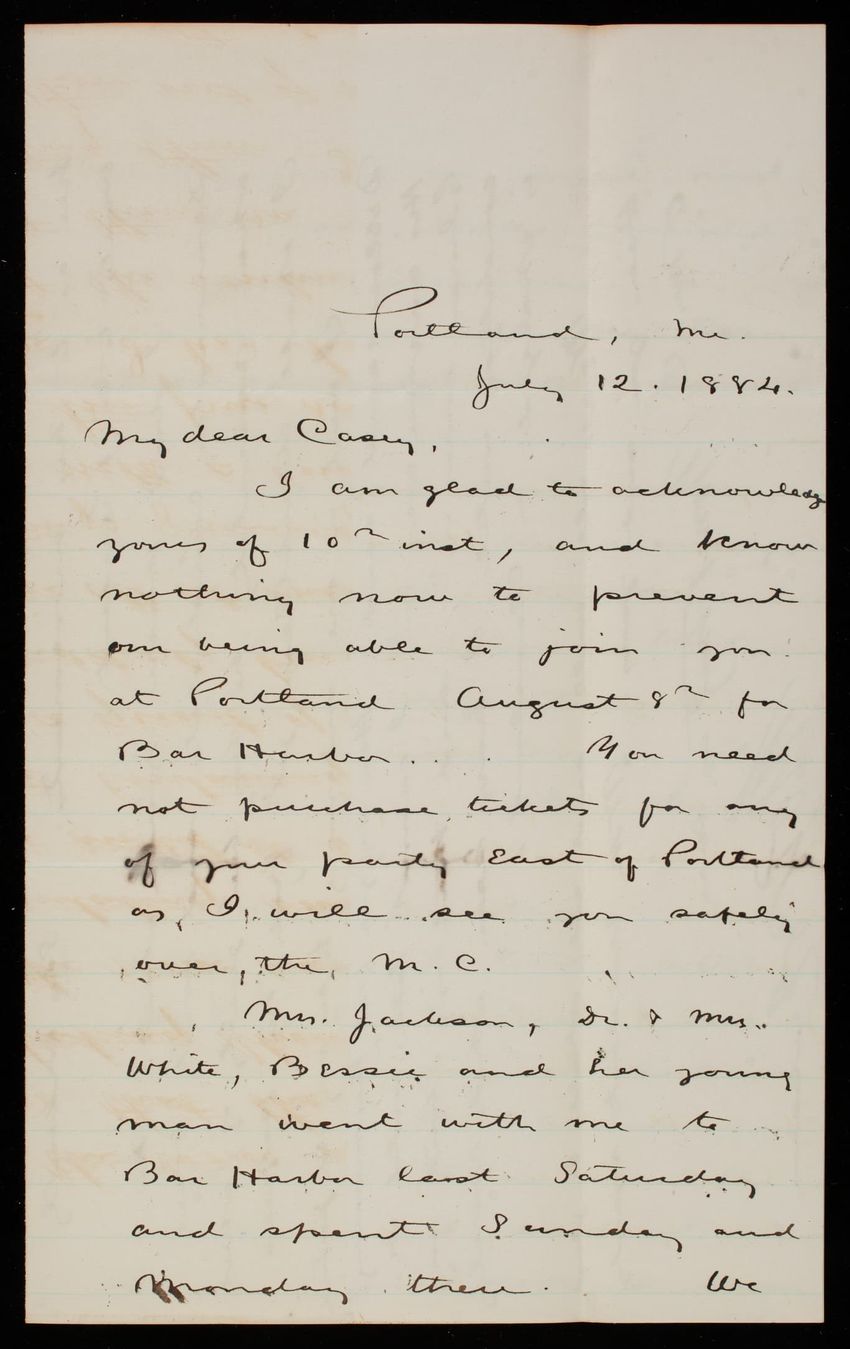 Portland, Me.
July 12. 1884.
My dear Casey,
I am glad to acknowledge
yours of 10th inst, and know
nothing now to prevent
our being able to join you
at Portland August 8th for
Bar Harbor. You need
not purchase tickets for any
of your party East of Portland
as I will see you safely
over the M. C.
Mrs. Jackson, Dr. & Mrs.
White, Bessie and her young
man went with me to
Bar Harbor last Saturday
and spent Sunday and
Monday there. We